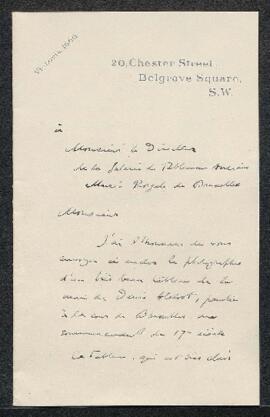 Victoria 1690
20, Chester Street
Belgrave Square,
S.W.
à
Monsieur le Directeur
de la Galerie de Tableaux anciens
Musée Royale de Bruxelles
Monsieur
J'ai l'honneur de vous
envoyer ci-inclus la photographie
d'un très beau tableau de la
main de Denis Alsloot, peintre
à la cour de Bruxelles au
commencement du 17e siècle
Ce tableau, qui est très